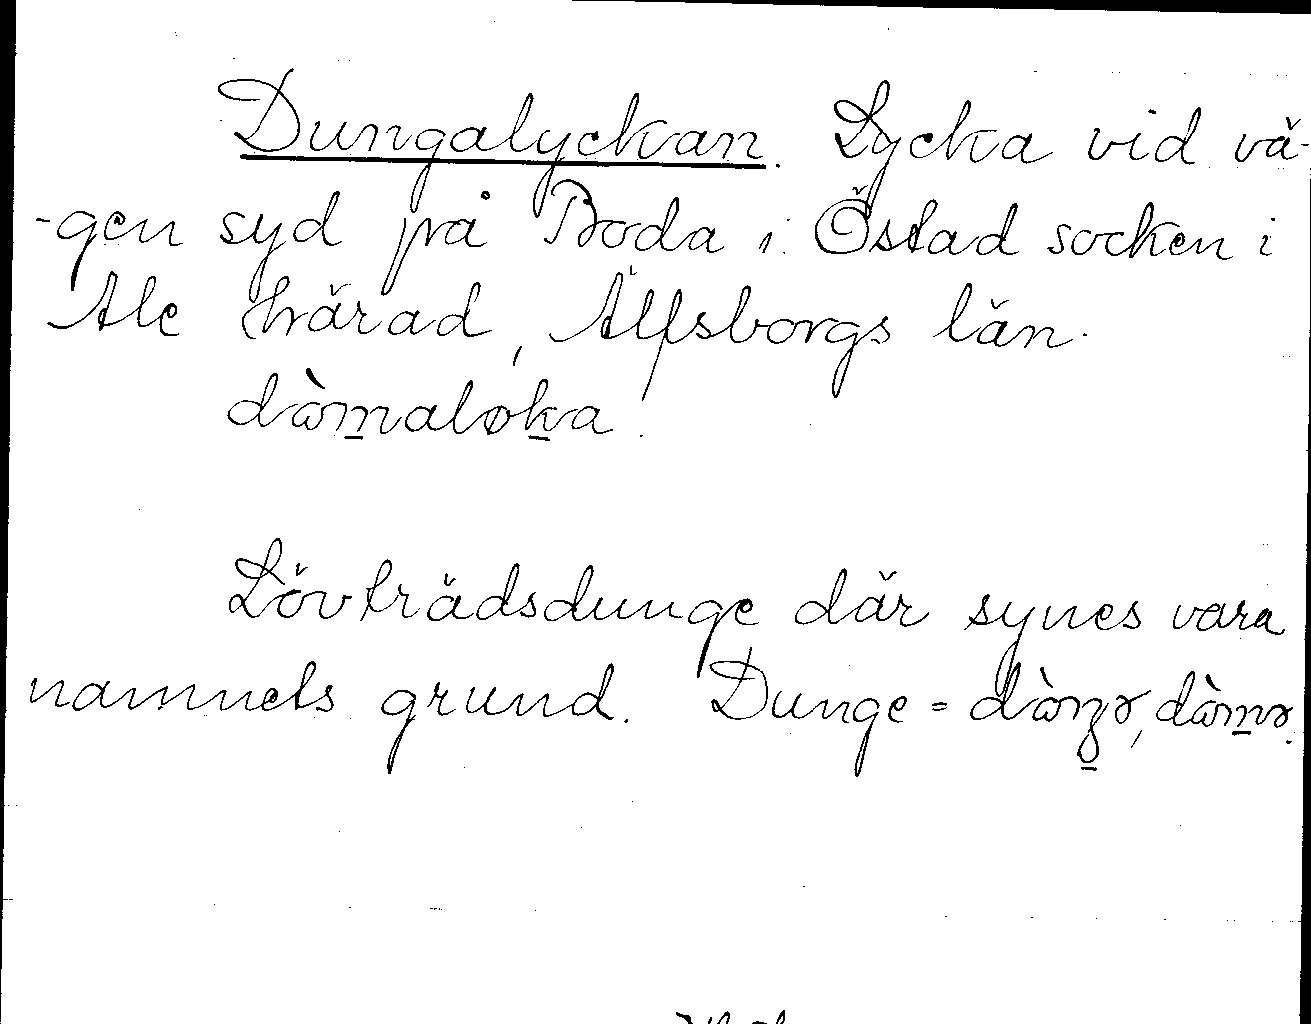 Dungalyckan. Lycka vid vä-
-gen syd på Boda i Östad socken i
Ale härad, Älfsborgs län.
dòm̲aløk̲a
Lövträdsdunge där synes vara
namnets grund. Dunge =